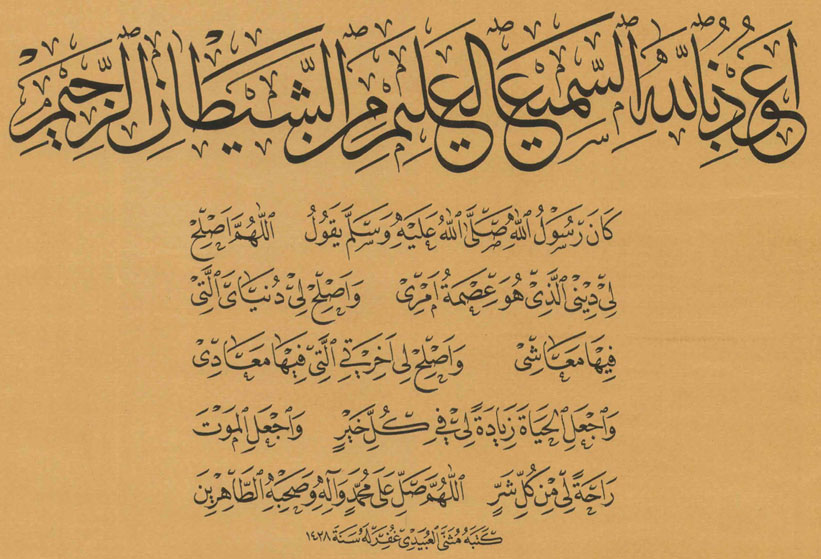 اَعُوذُ بِاللّٰهِ السَّمِيعِ العَلِيمِ مِنَ الشَّيْطَانِ الرَّجِيمِ
كَانَ رَسُولُ اللّٰهِ صَلَّى اللّٰهُ عَلَيْهِ وَسَلَّمَ يَقُولُ اَللّٰهُمَّ اَصْلِحْ
لِى دِينِى الَّذِى هُوَ عِصْمَةُ اَمْرِى وَاَصْلِحْ لِى دُنْيَاىَ الَّتِى
فِيهَا مَعَاشِى وَاَصْلِحْ لِى اٰخِرَتِى الَّتِى فِيهَا مَعَادِى
وَاجْعَلِ الْحَيَاةَ زِيَادَةً لِى فِى كُلِّ خَيْرٍ وَاجْعَلِ الْمَوْتَ
رَاحَةً لِى مِنْ كُلِّ شَرٍّ اَللّٰهُمَّ صَلِّ عَلَى مُحَمَّدٍ وَآلِهِ وَصَحْبِهِ الطَّاهِرِينَ
كَتَبَهُ مُثَنَّى العُبَيْدِى غُفِرَ لَهُ سَنَةَ ١٤٢٨